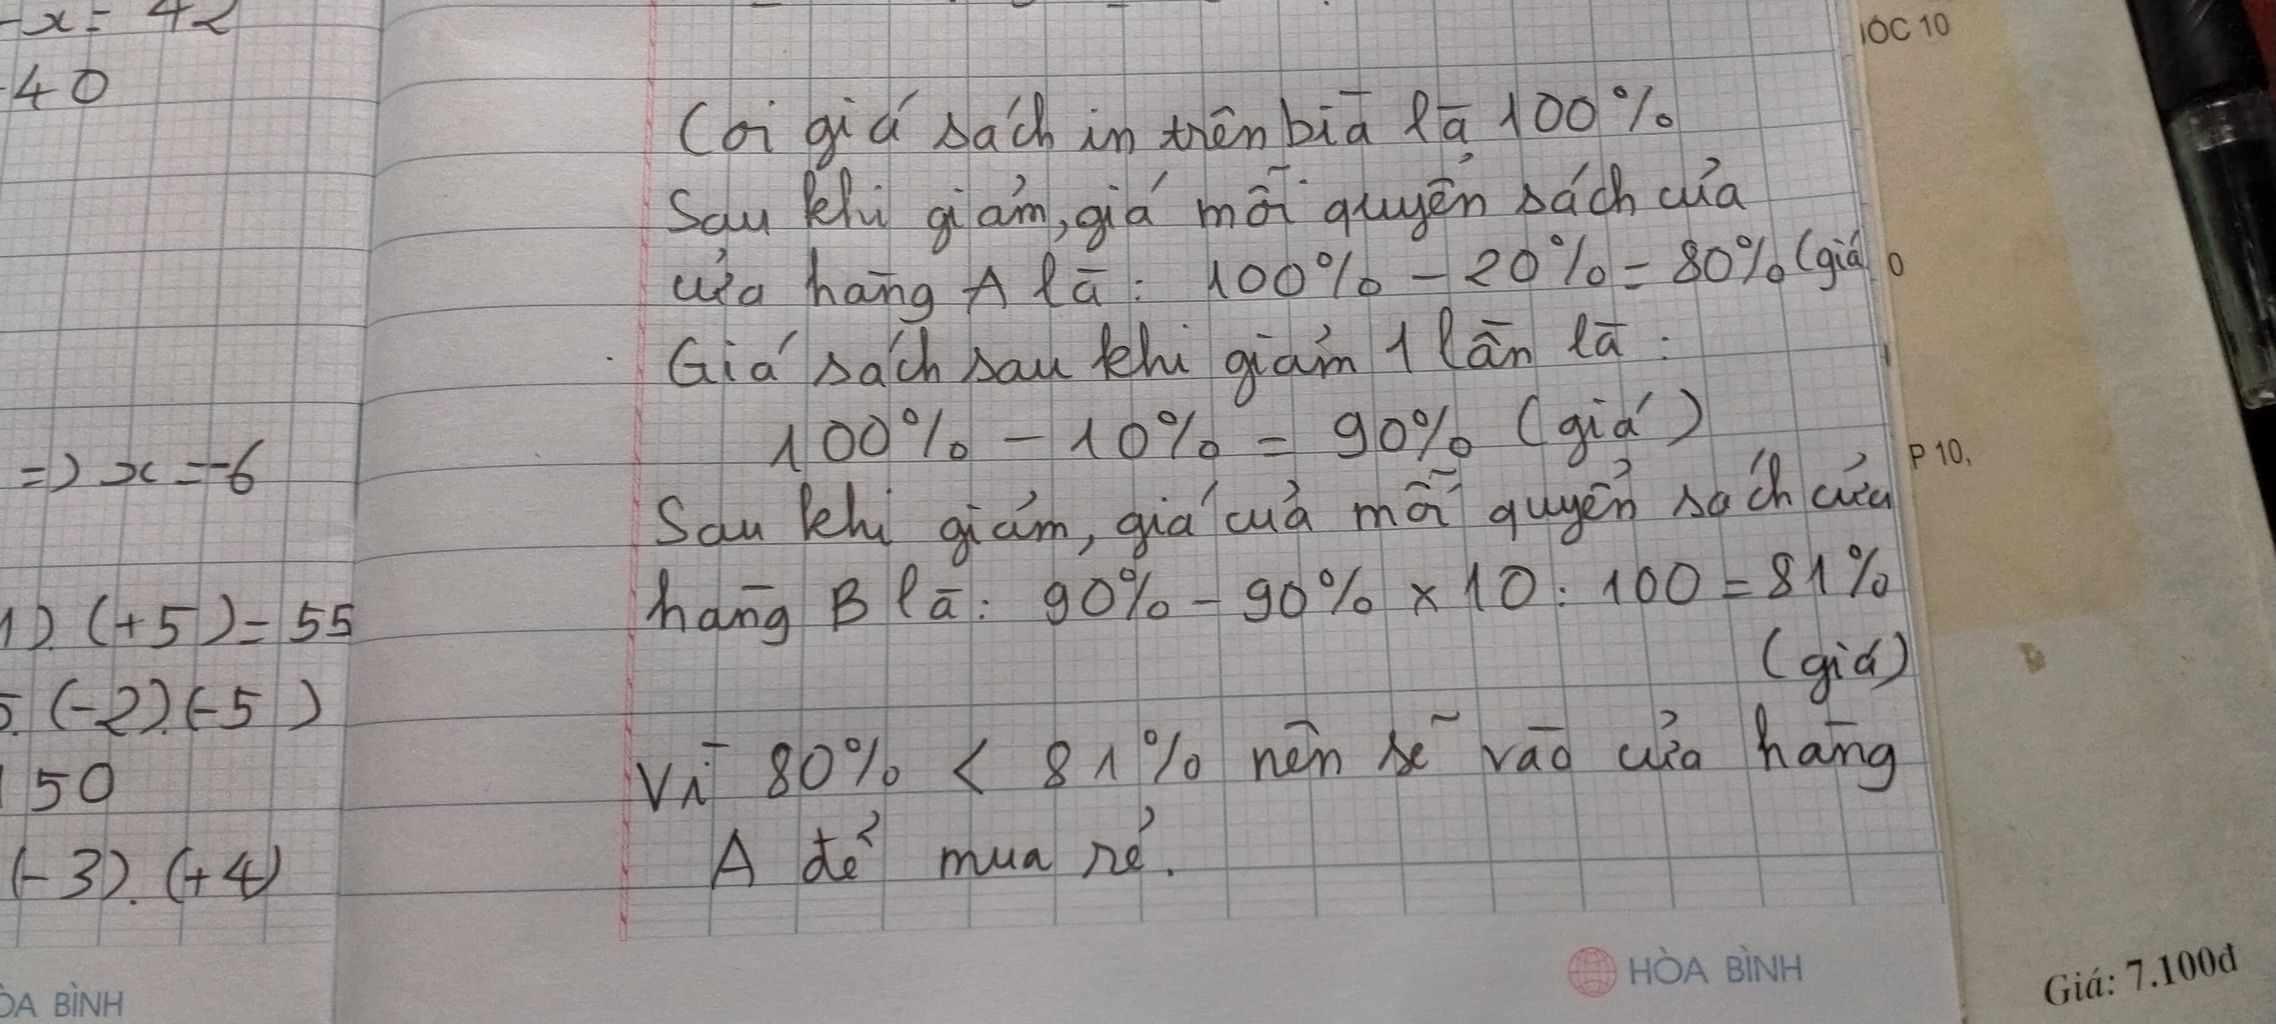 -x = 42
40
=> x = -6
1). (+5) = 55
5. (-2).(-5)
150
(-3). (+4)
ÒA BÌNH
Coi giá sách in trên bìa là 100%
Sau khi giảm, giá mỗi quyển sách của
cửa hàng A là : 100% - 20% = 80% (giá
Giá sách sau khi giảm 1 lần là :
100% - 10% = 90% (giá)
Sau khi giảm, giá của mỗi quyển sách cửa
hàng B là : 90% - 90% x 10 : 100 = 81%
(giá)
Vì 80% < 81% nên sẽ vào cửa hàng
A để mua rẻ.
HÒA BÌNH
ÓC 10
0
P 10,
Giá: 7.100đ